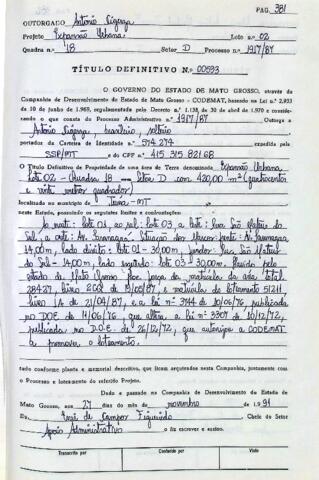 PAG. 381
OUTORGADO Antônio Nóganga
Projeto Expansão Urbana Lote n.º 02
Quadra n.º 18 Setor D Processo n.º 1917/87
TÍTULO DEFINITIVO N.º 00593
O GOVERNO DO ESTADO DE MATO GROSSO, através da
Companhia de Desenvolvimento do Estado de Mato Grosso - CODEMAT, baseado na Lei n.º 2.933
de 10 de junho de 1.965, regulamentada pelo Decreto n.º 1.138 de 30 de abril de 1.970 e considerando
o que consta do Processo Administrativo n.º 1917/87 Outorga a
Antônio, brasileiro, solteiro
portador da Carteira de Identidade n.º 574274 expedida pela
SSP/MT e do CPF n.º 415 315 821 68
O Título Definitivo de Propriedade de uma área de Terra denominada Expansão Urbana
Lote 02 - Quadra 18 - Setor D com 420,00 m² (quatrocentos
e vinte metros quadrados)
localizada no município de - MT
neste Estado, possuindo os seguintes limites e confrontações:
lote: 01, ao sul: lote 03, a leste: Rua São Mateus do
Sul, a oeste: Av.
14,00m, lado direito: lote 01 - 30,00m, fundos: Rua São Mateus
do Sul - 14,00m, lado esquerdo: lote 03 - 30,00m, pelo
Estado de Mato Grosso por força da matrícula da área total
28427, livro 2CQ de 19/03/87, e matrícula do loteamento 51211
livro 1A de 21/04/87, e a lei n.º 3744 de 10/06/76 publicada
no DOE de 11/06/76 que altera a lei n.º 3307 de 18/12/72,
publicada no D.O.E. de 26/12/72, que autorize a CODEMAT
a promover o loteamento.
tudo conforme planta e memorial descritivo, que ficam arquivados nesta Companhia, juntamente com
o Processo e loteamento do referido Projeto.
Dado e passado na Companhia de Desenvolvimento do Estado de
Mato Grosso, aos 27 dias do mês de novembro de 1.991
Eu, de Campos Figueiredo Chefe do Setor
Apoio Administrativo o fiz escrever e assino.
Transcrito por Conferido por Visto